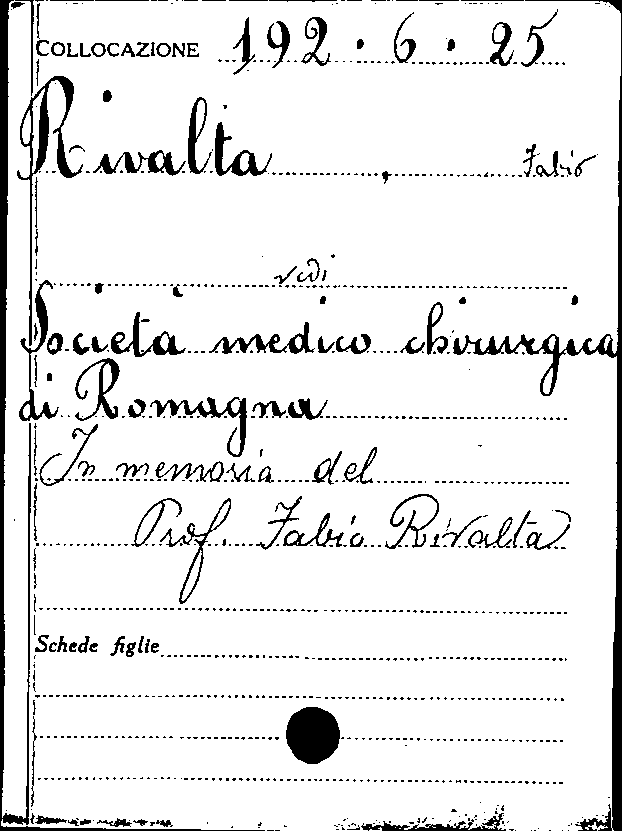 COLLOCAZIONE 192.6.25
Rivalta, Fabio
vedi
Società medico chirurgica
di Romagna
In memoria del
Prof. Fabio Rivalta
Schede figlie